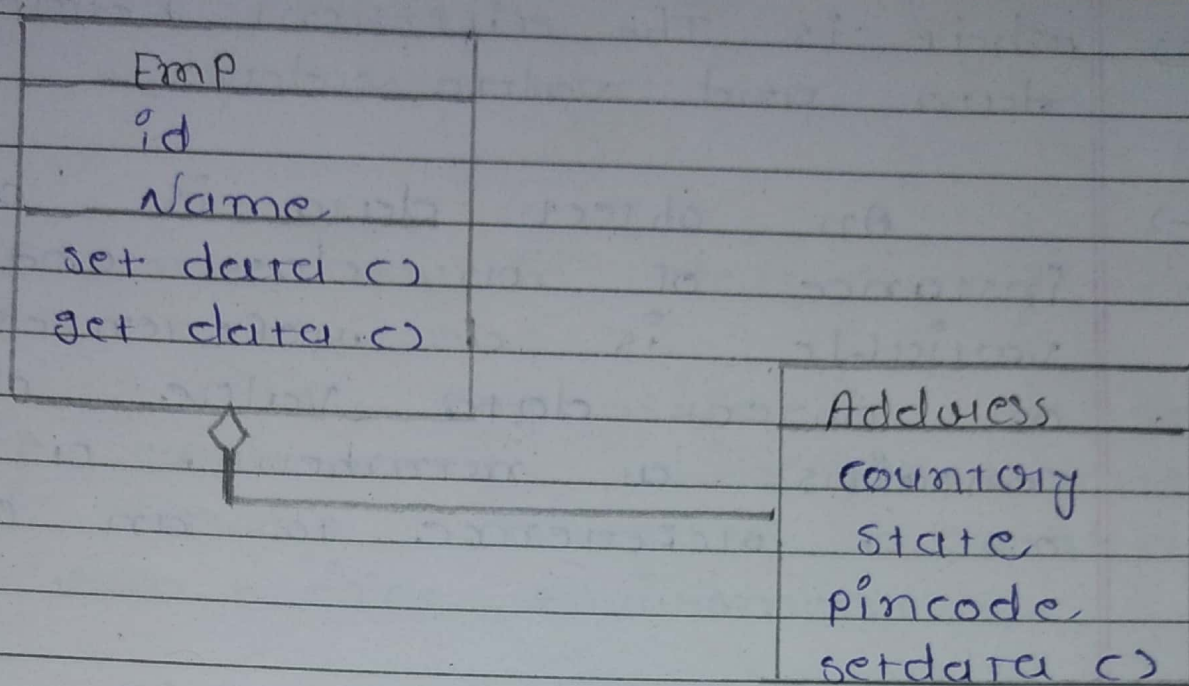 Emp
id
Name
set data ()
get data ()
Address
country
state
pincode
setdata ()